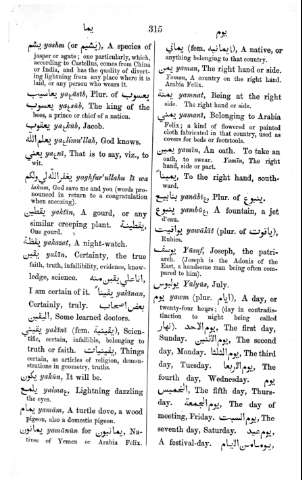 يما
315
يوم
يشم yashm (or يشيم), A species of
jasper or agate; one particularly, which,
according to Castellus, comes from China
or India, and has the quality of divert-
ing lightning from any place where it is
laid, or any person who wears it.
يعسوب Plur. of
يعسوب The king of the
bees, a prince or chief of a nation.
يعقوب Jacob.
يعلم الله God knows.
يعني That is to say, viz., to
wit.
يغفر الله لي ولكم yaghfur'ullahu lī wa
lakum, God save me and you (words pro-
nounced in return to a congratulation
when sneezing).
يقطين yaktīn, A gourd, or any
similar creeping plant. يقطينة
One gourd.
يقظة yakazat, A night-watch.
يقين yakīn, Certainty, the true
faith, truth, infallibility, evidence, know-
ledge, science.
I am certain of it. يقينا yakīnan,
Certainly, truly.
Some learned doctors.
يقيني yakīnī (fem. يقينية), Scien-
tific, certain, infallible, belonging to
truth or faith. يقينيات Things
certain, as articles of religion, demon-
strations in geometry, truths
يكون yakūn, It will be.
يلمع yalmaʿ, Lightning dazzling
the eyes.
يمام yamām, A turtle dove, a wood
pigeon, also a domestic pigeon.
يمانون yamānūn for يمانيون Na-
tives of Yemen or Arabia Felix.
يماني (fem. يمانية), A native, or
anything belonging to that country.
يمن yaman, The right hand or side.
Yemen, A country on the right hand.
Arabia Felix.
يمنة yamnat, Being at the right
side. The right hand or side.
يمني yamanī, Belonging to Arabia
Felix; a kind of flowered or painted
cloth fabricated in that country, used as
covers for beds or footstools.
يمين yamīn, An oath. To take an
oath, to swear. Yamīn, The right
hand, side or part.
يمينا To the right hand, south-
ward.
ينابيع yanābīʿ, Plur. of ينبوع
ينبوع yambūʿ, A fountain, a jet
d'eau.
يواقيت yawākīt (plur. of ياقوت),
Rubies.
يوسف Yūsuf, Joseph, the patri-
arch. (Joseph is the Adonis of the
East, a handsome man being often com-
pared to him).
يوليوس Yulyūs, July.
يوم yawm (plur. ايام), A day, or
twenty-four hours; (day in contradis-
tinction to night being called
نهار). يوم الاحد The first day,
Sunday. يوم الاثنين The second
day, Monday. يوم الثلثا The third
day, Tuesday. يوم الاربعا The
fourth day, Wednesday. يوم
الخميس The fifth day, Thurs-
day. يوم الجمعة The day of
meeting, Friday. يوم السبت The
seventh day, Saturday. يوم عيد
A festival-day.